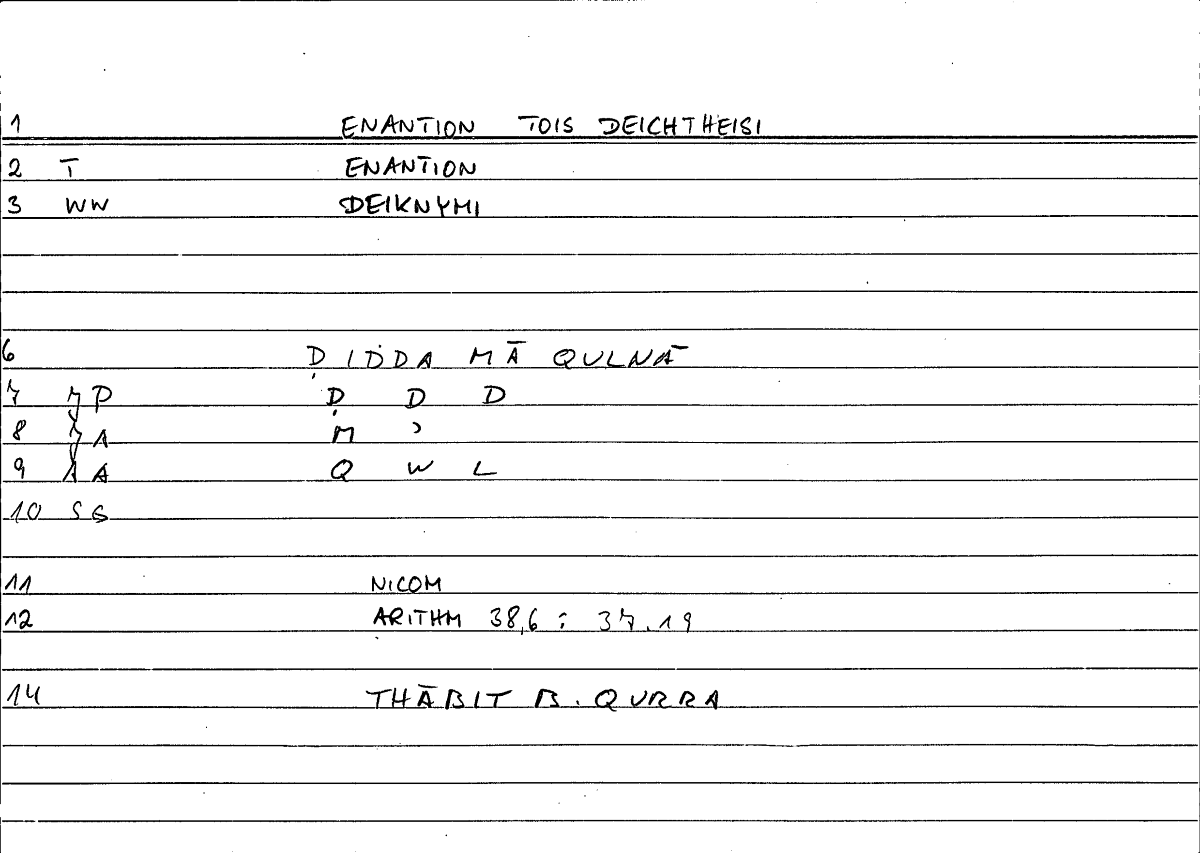 1 ENANTION TOIS DEICHTHEISI
2 T ENANTION
3 WW DEIKNYMI
6 ḌIḌDA MĀ QULNĀ
7 Ḍ D D
8 M ʾ
9 Q W L
10 SG
11 NICOM
12 ARITHM 38,6 : 37.19
14 THĀBIT B. QURRA